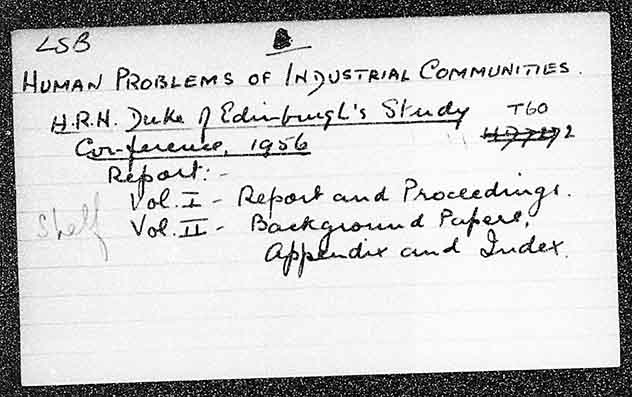 LSB
HUMAN PROBLEMS OF INDUSTRIAL COMMUNITIES.
H.R.H. Duke of Edinburgh's Study
Conference, 1956
T60
2
Report:-
Vol. I - Report and Proceedings.
Shelf
Vol. II - Background Papers,
Appendix and Index.